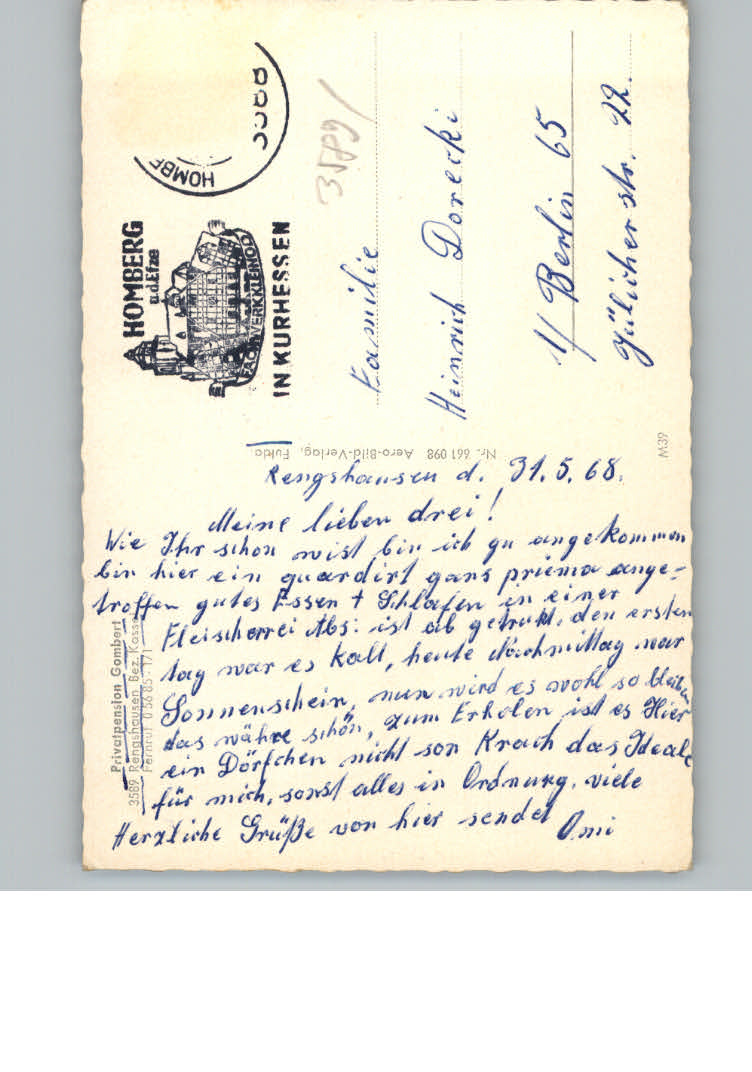 HOMBE
3588
HOMBERG
a.d.Efze
FACHWERKKLEINOD
IN KURHESSEN
3589/
Familie
Heinrich Dorecki
1/ Berlin 65
Jülicher str. 22.
Nr. 661 098 Aero-Bild-Verlag, Fulda
M39
Privatpension Gombert
3589 Rengshausen Bez. Kassel
Fernruf 0 56 85-171
Rengshausen d. 31.5.68.
Meine lieben drei!
Wie Ihr schon wist bin ich gu angekommen
bin hier ein quardirt gans priema ange-
troffen gutes Essen + Schlafen in einer
Fleischerrei Abs: ist ab getrukt. den ersten
tag war es kalt, heute Nachmittag war
Sonnenschein, nun wird es wohl so bleiben
das währe schön, zum Erholen ist es Hier
ein Dörfchen nicht son Krach das Ideale
für mich, sonst alles in Ordnung. viele
Herzliche Grüße von hier sendet Omi